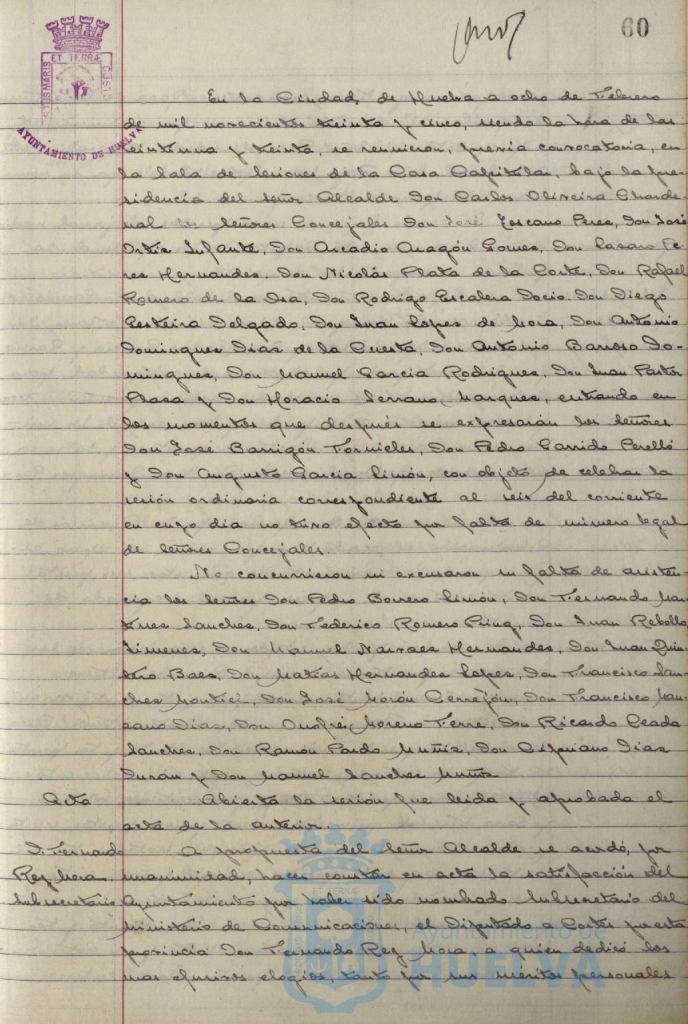 60
ET TERRÆ
AYUNTAMIENTO DE HUELVA
En la Ciudad, de Huelva a ocho de Febrero
de mil novecientos treinta y cinco, siendo la hora de las
veintiuna y treinta, se reunieron, previa convocatoria, en
la Sala de Sesiones de la Casa Capitular, bajo la pre-
sidencia del Señor Alcalde Don Carlos Oliveira Chardenal
los Señores Concejales Don José Toscano Peres, Don José
Ortiz Infante, Don Arcadio Aragón Gomes, Don Lazaro Pe-
res Hernandes, Don Nicolás Plata de la Corte, Don Rafael
Romero de la Osa, Don Rodrigo Escalera Docio. Don Diego
Lesteira Delgado, Don Juan Lopes de Mora, Don Antonio
Domingues Dias de la Cuesta, Don Antonio Barroso Do-
mingues, Don Manuel Garcia Rodrigues, Don Juan Pastor
Plasa y Don Horacio Serrano Marques, entrando en
los momentos que después se expresarán los señores
Don José Barrigón Fornieles, Don Pedro Garrido Perelló
y Don Augusto Garcia Limón, con objeto de celebrar la
sesión ordinaria correspondiente al seis del corriente
en cuyo dia no tuvo efecto por falta de número legal
de Señores Concejales.
No concurrieron ni excusaron su falta de asisten-
cia los Señores Don Pedro Borrero Limón, Don Fernando Mar-
tines Sanches, Don Federico Romero Prinz, Don Juan Rebollo
Jimenes, Don Manuel Narvaes Hermandes, Don Juan Quin-
tero Baes, Don Matías Hernandes Lopes, Don Francisco San-
ches Montiel, Don José Morón Cerrejón, Don Francisco Man-
zano Dias, Don Onofre Moreno Ferre, Don Ricardo Ceada
Sanches, Don Ramón Pardo Muñiz, Don Cipriano Dias
Durán y Don Manuel Sanches Muñoz.
Acta Abierta la sesión fue leida y aprobada el
acta de la anterior.
D. Fernando A propuesta del Señor Alcalde se acordó, por
Rey Mora unanimidad, hacer constar en acta la satisfacción del
Subsecretario Ayuntamiento por haber sido nombrado Subsecretario del
Ministerio de Comunicaciones, el Diputado a Cortes por esta
provincia Don Fernando Rey Mora a quien dedicó los
mas efusivos elogios, tanto por sus méritos personales
HUELVA